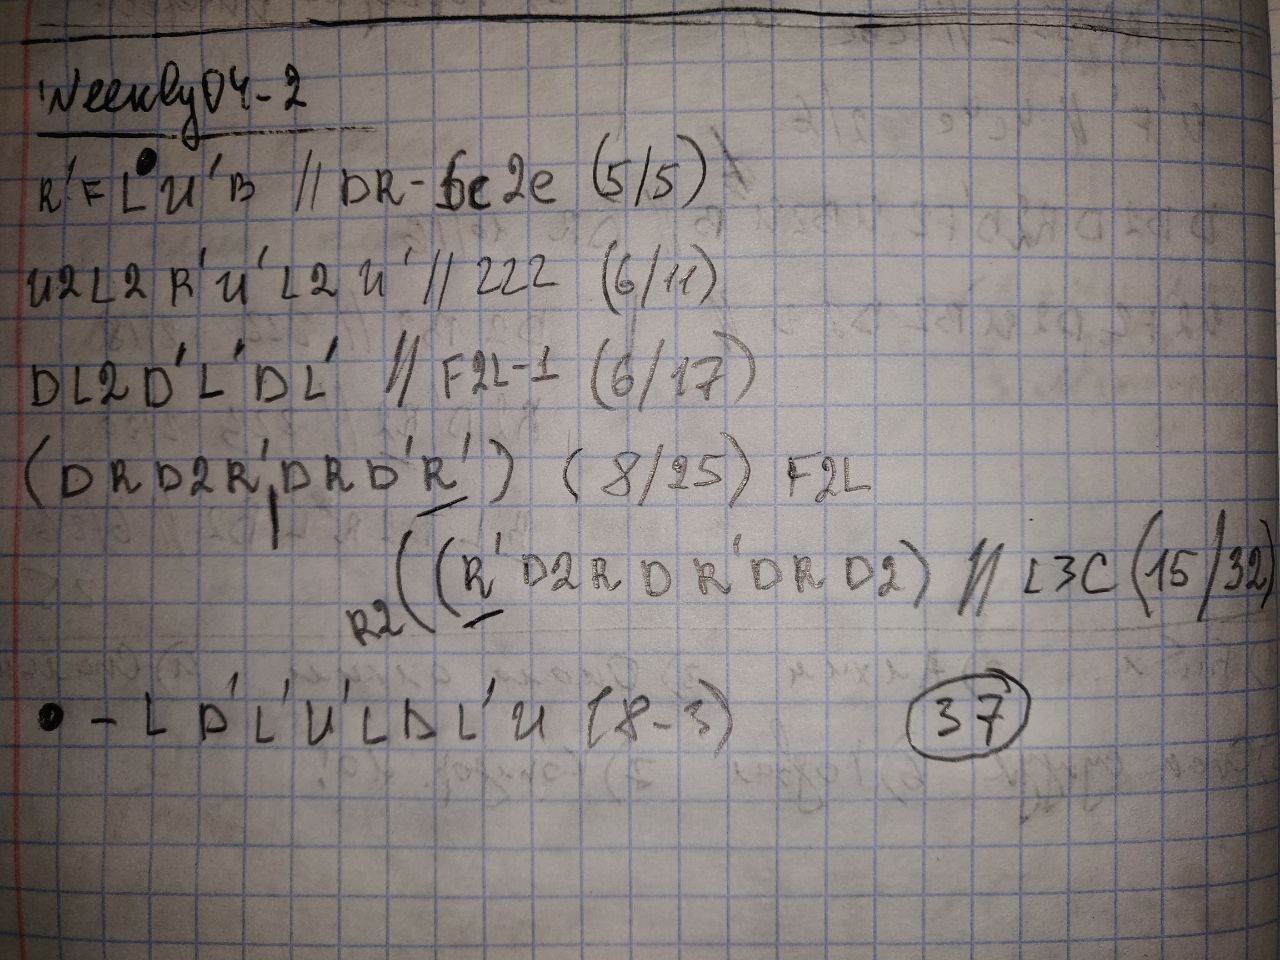 Weekly 04-2
R'F L U'B // DR-6c2e (5/5)
U2L2 R'U'L2 U' // 222 (6/11)
DL2D'L'DL' // F2L-1 (6/17)
(DRD2R'DRD'R') (8/25) F2L
R2((R'D2RDR'DRD2) // L3C (15/32)
• - L D'L'U'LDL'U (8-3) 37